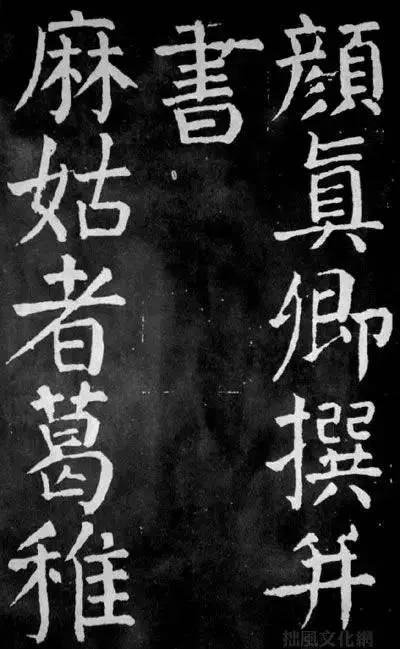 顏眞卿撰并
書
麻姑者葛稚
拙風文化網